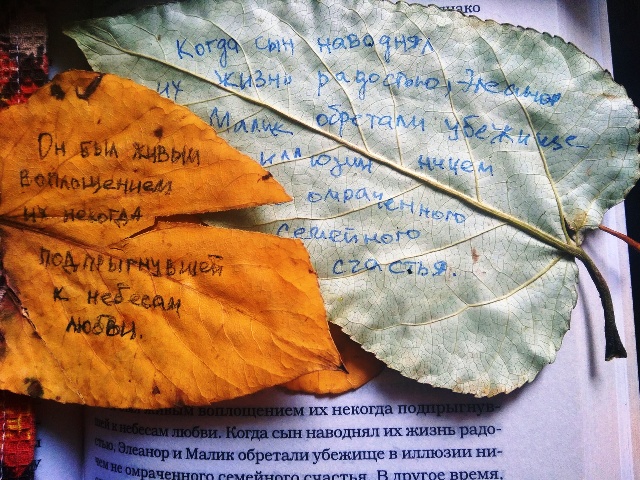 однако
Когда сын наводнял
их жизнь радостью, Элеанор
Малик обретали убежище
иллюзии ничем
омраченного
семейного
счастья.
Он был живым
воплощением
их некогда
подпрыгнувшей
к небесам
любви.
живым воплощением их некогда подпрыгнув-
шей к небесам любви. Когда сын наводнял их жизнь радо-
стью, Элеанор и Малик обретали убежище в иллюзии ни-
чем не омраченного семейного счастья. В другое время,